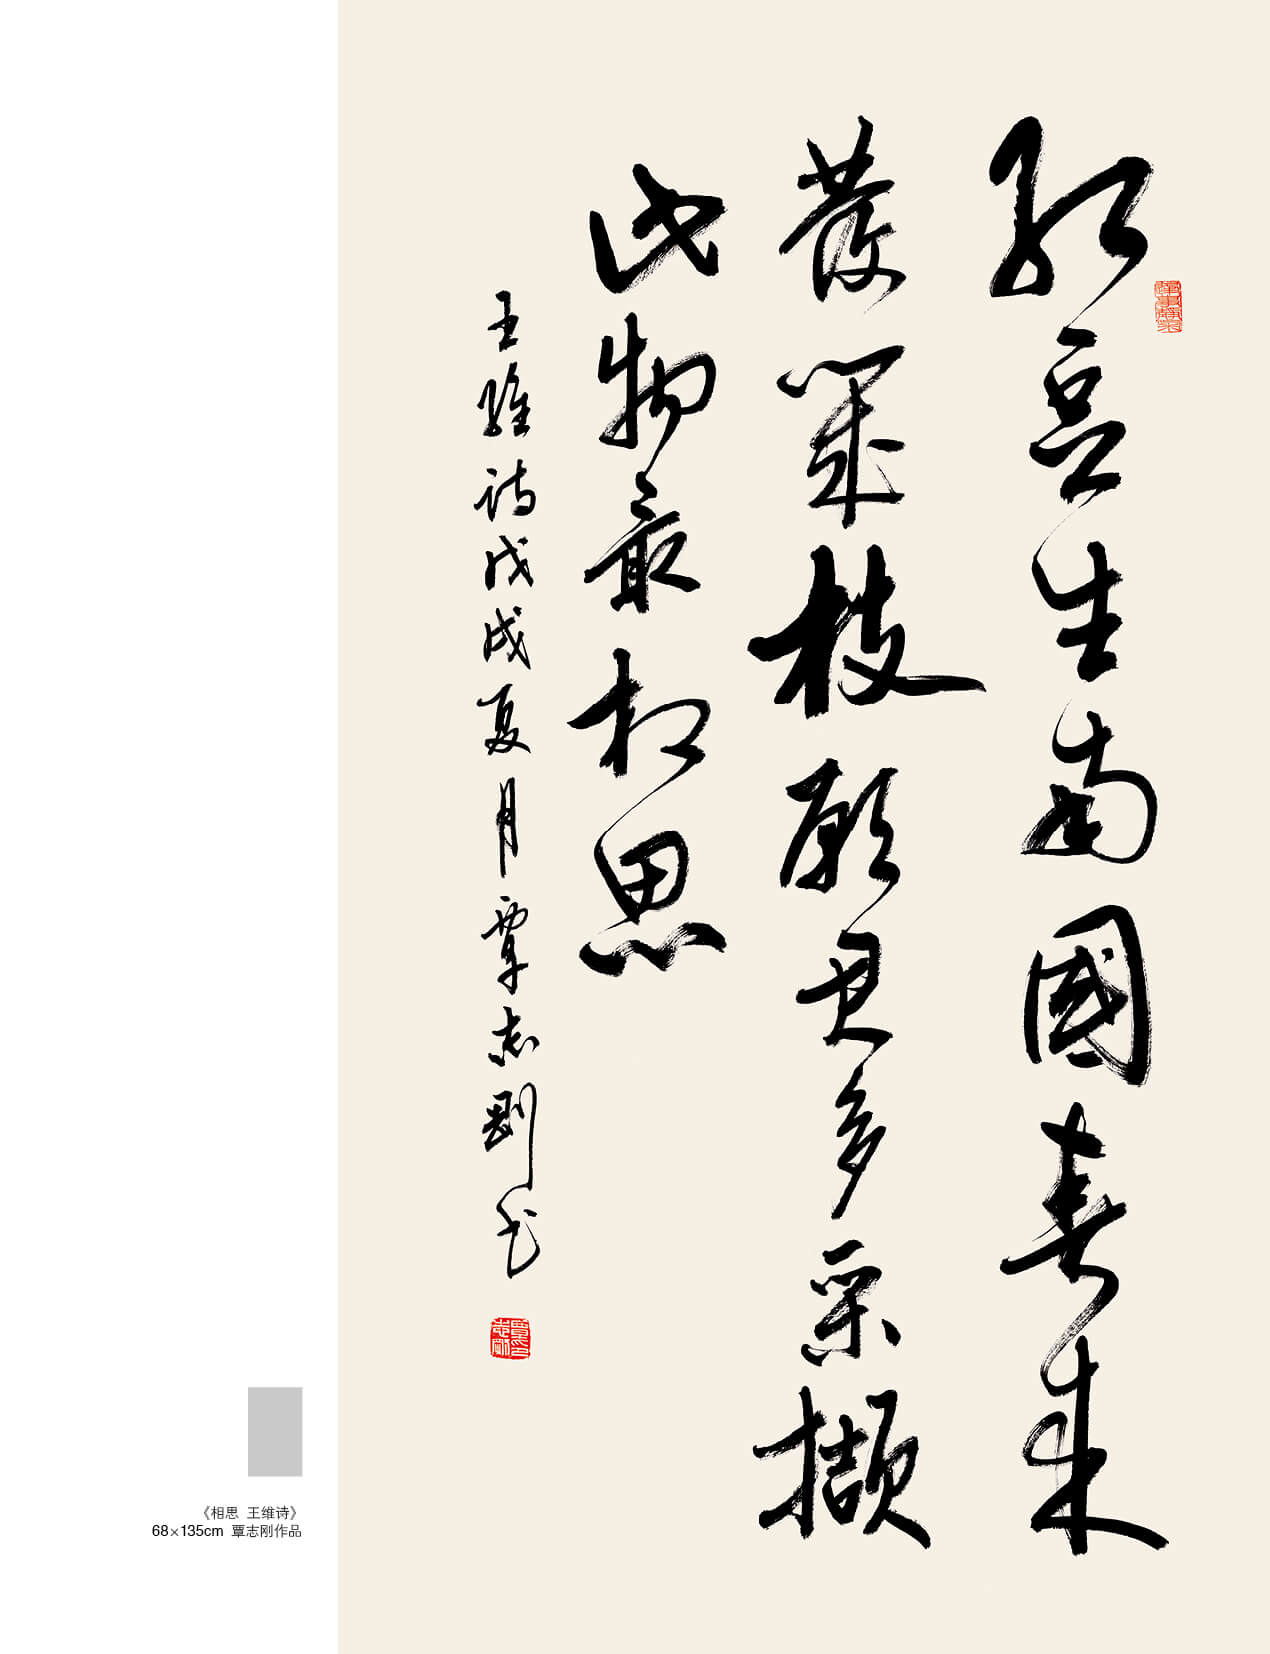 红豆生南國春来
發几枝願君多采撷
此物最相思
王維诗戊戌夏月覃志刚书
《相思 王维诗》
68×135cm 覃志刚作品